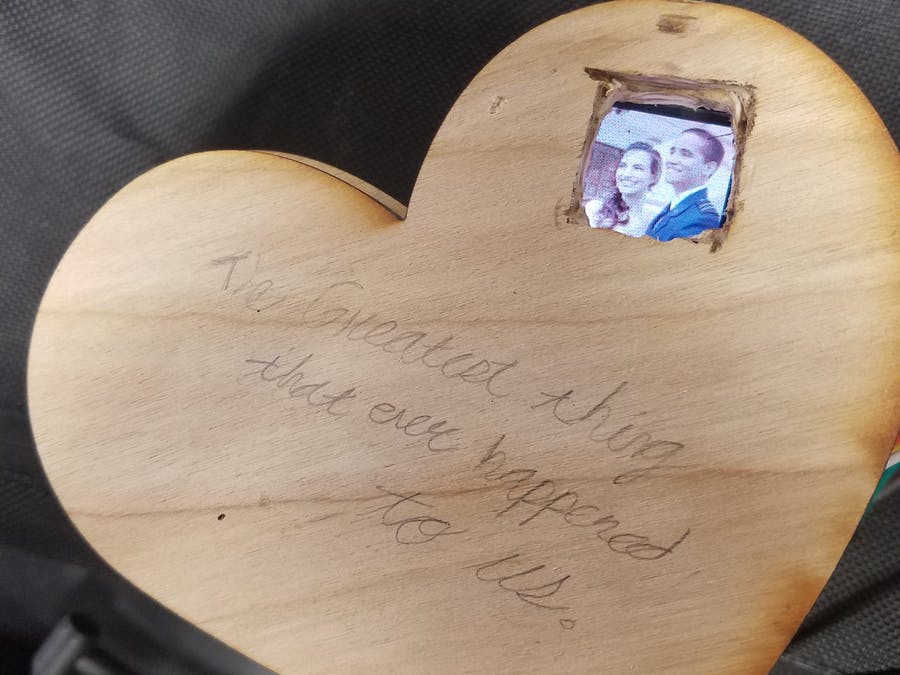 The Greatest thing
that ever happened
to us.